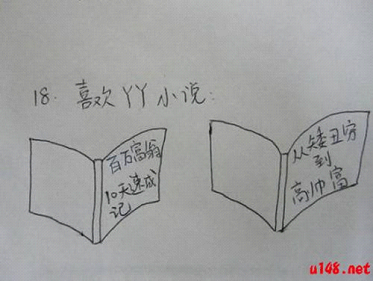 18. 喜欢丫丫小说:
百万富翁
10天速成
记
从矮丑穷
到
高帅富
u148.net